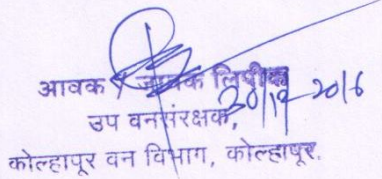 आवक / जावक लिपीक
20/12-2016
उप वनसंरक्षक,
कोल्हापूर वन विभाग, कोल्हापूर.